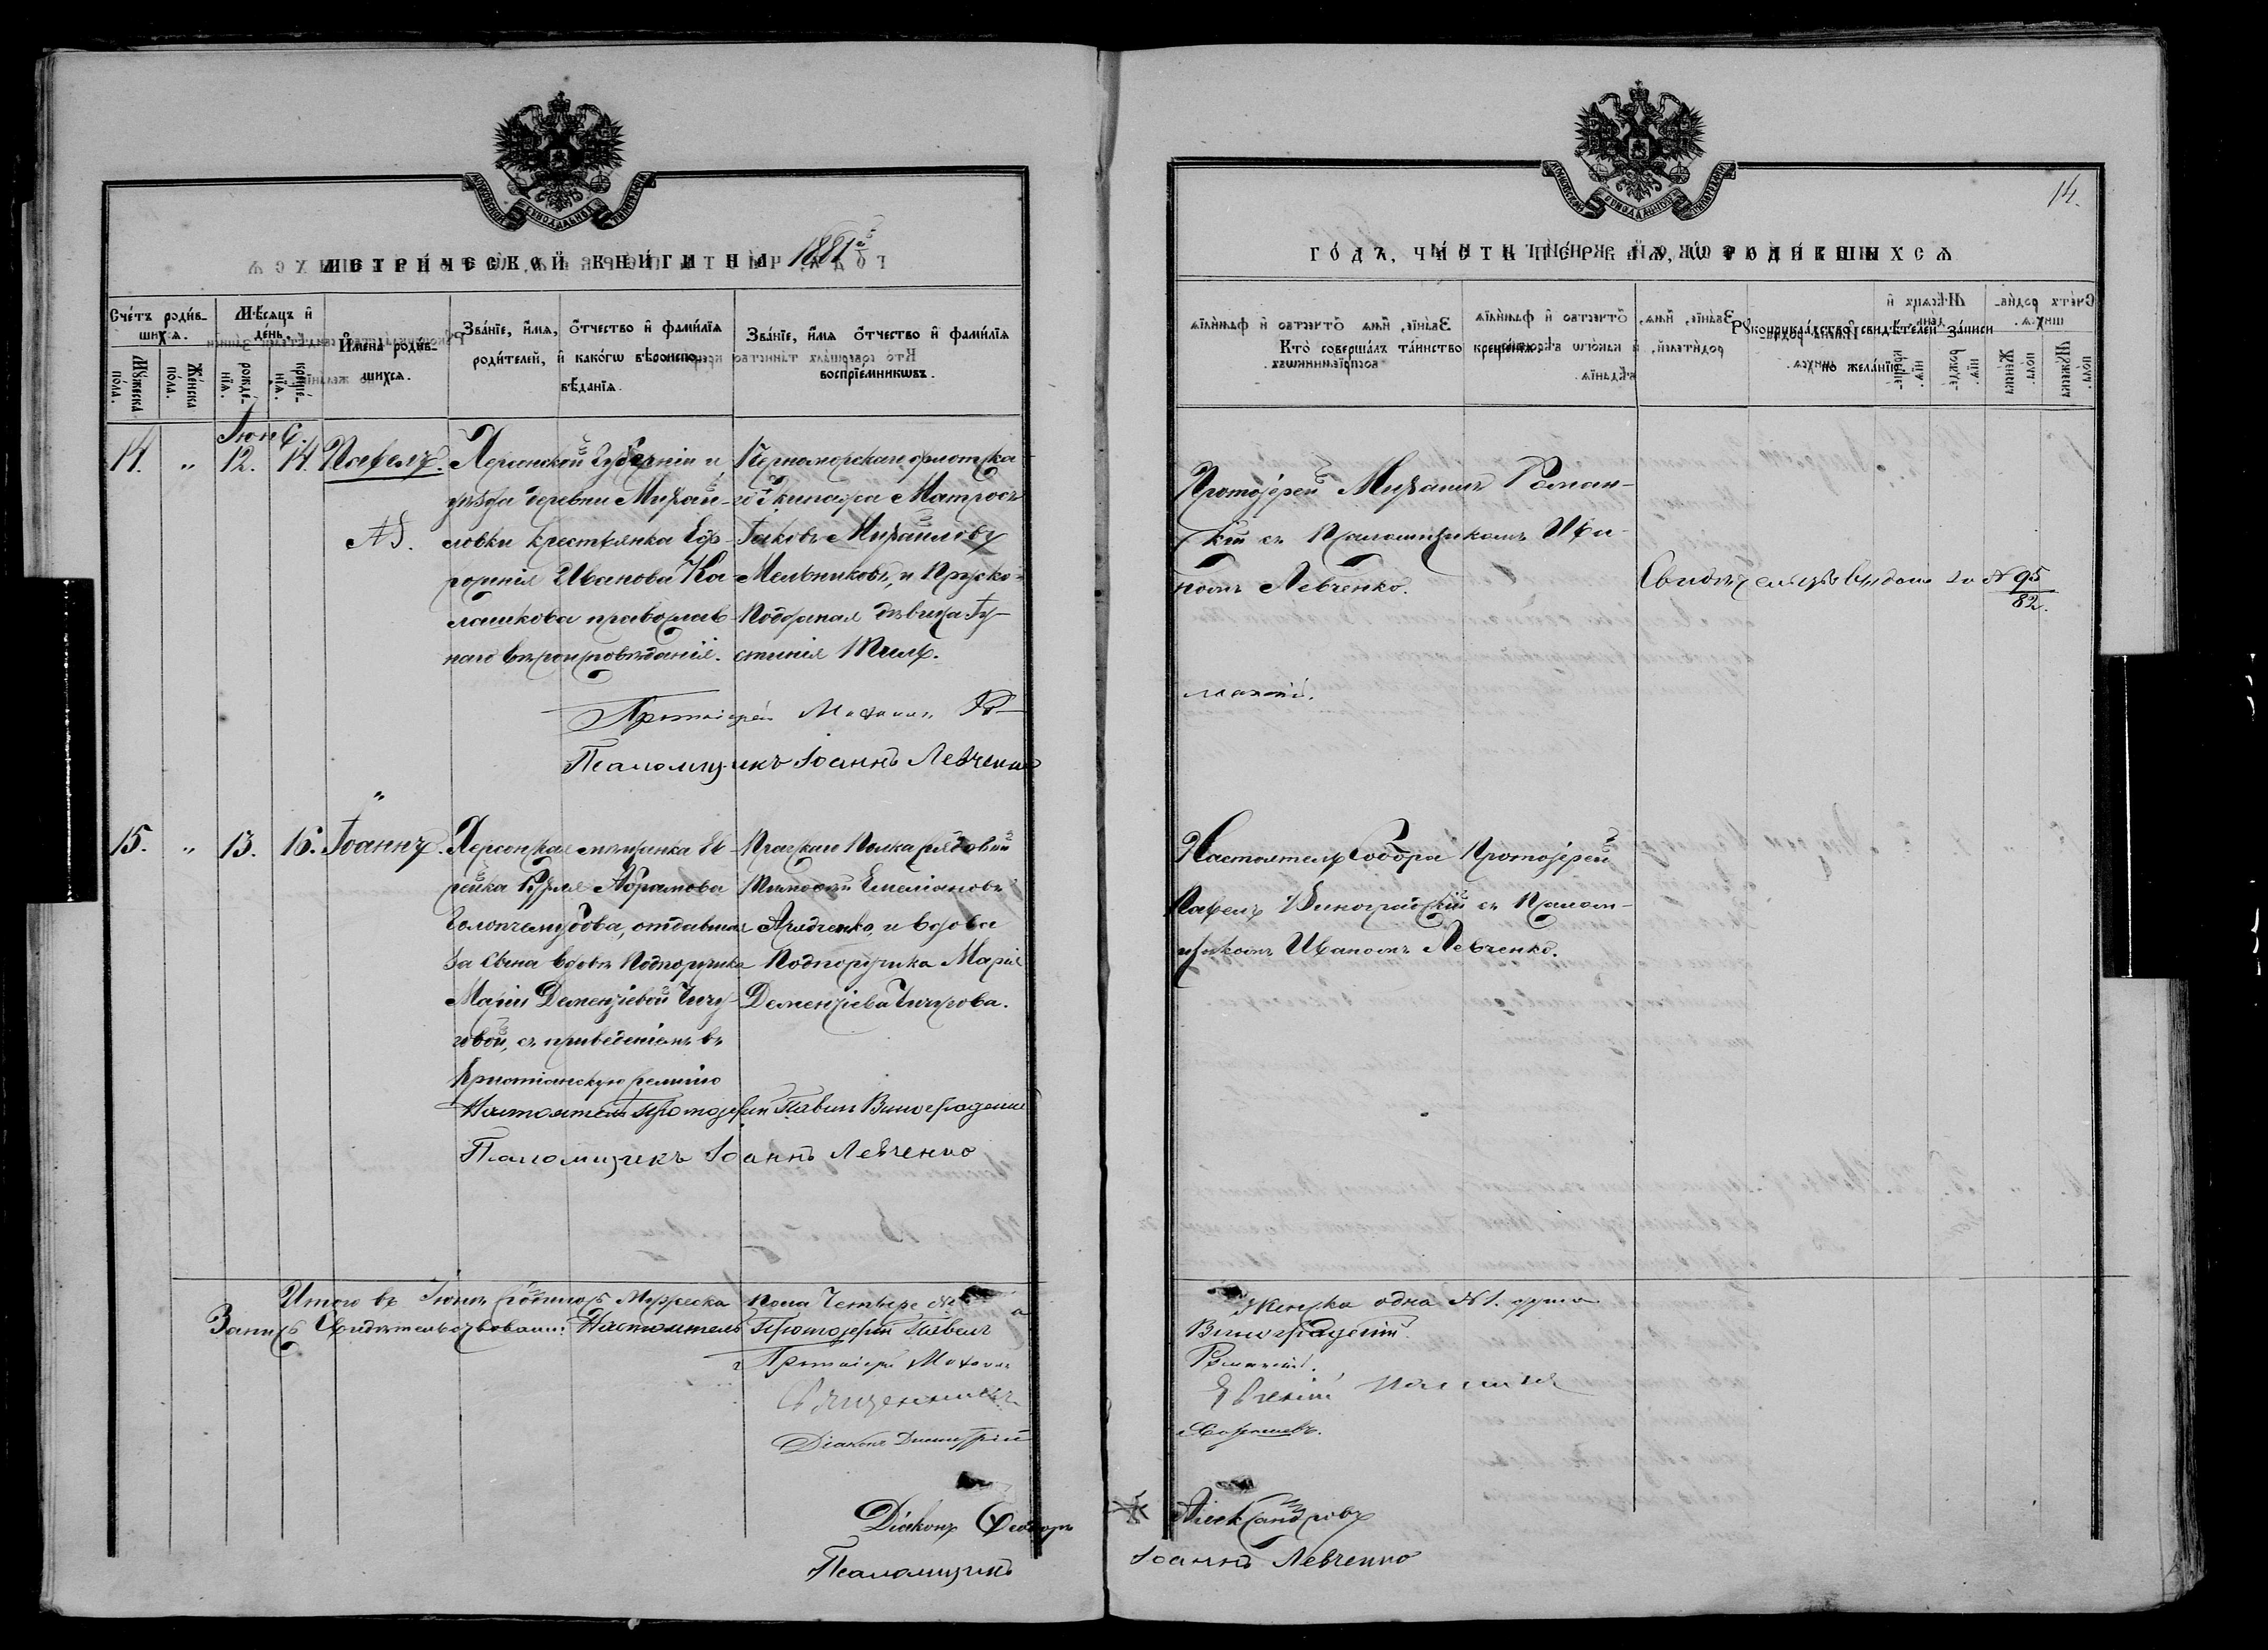 14.
МОСКОВСКОЙ СѴНОДАЛЬНОЙ ТИПОГРАФІИ
МОСКОВСКОЙ СѴНОДАЛЬНОЙ ТИПОГРАФІИ
МЕТРИЧЕСКОЙ КНИГИ НА 1881й
ГО́ДЪ, ЧА́СТЬ ПЕ́РВАЯ, Ѡ РОДИ́ВШИХСѦ
Сче́тъ роди́в-
шихсѧ.
Мꙋ́жеска по́ла.
Же́нска по́ла.
Мѣ́сѧцъ и҆ де́нь.
рожде́-нїѧ.
креще́-нїѧ.
И҆мена̀ роди́в-
шихсѧ.
Зва́нїе, и҆́мѧ, ѻ҆́тчество и҆ фами́лїѧ
роди́телей, и҆ како́гѡ вѣроиспо-
вѣ́данїѧ.
Зва́нїе, и҆́мѧ ѻ҆́тчество и҆ фами́лїѧ
воспрїе́мникѡвъ.
Кто̀ соверша́лъ та́инство креще́нїѧ.
Рꙋкоприкла́дство свидѣ́телей за́писи
по жела́нїю.
Іюнь.
14. " 12. 14. Павелъ.
Херсонской Губерніи и
уѣзда деревни Михай-
ловки крестьянка Евф-
росинія Иванова Ка-
лашкова православ-
наго вѣроисповѣданія.
Черноморскаго флотска-
го Экипажа Матросъ
Іаковъ Михайловъ
Мельниковъ, и Пруско-
Подданая дѣвица Іу-
стинія Тиль.
Протоіерей Михаилъ Роман-
скій съ Псаломщикомъ Ива-
номъ Левченко.
Свидѣтельство выдано за № 95
82.
Протоіерей Михаилъ Ро-
манскій.
Псаломщикъ Іоаннъ Левченко
15. " 13. 16. Іоаннъ.
Херсонская мѣщанка Ев-
рейка Рухля Абрамова
Голопчемудова, отдавшая
за Сына вдовѣ Подпоручика
Маріи Дементіевой Чичу-
говой, съ приведеніемъ въ
Христіанскую религію
Пражскаго Полка рядовой
Тимофей Емеліановъ
Аридченко, и вдова
Подпоручика Марія
Дементіева Чичугова.
Настоятель Собора Протоіерей
Павелъ Виноградскій съ Псалом-
щикомъ Иваномъ Левченко.
Настоятель Протоіерей Павелъ Виноградскій
Псаломщикъ Іоаннъ Левченко
Итого въ Іюнѣ родилось Мужеска пола Четыре Женска одна № 1. душа
Запись Свидѣтельствовали: Настоятель Протоіерей Павелъ Виноградскій
Протоіерей Михаилъ Романскій.
Священникъ Евгеній
Діаконъ Димитрій
Діаконъ Феодоръ Александровъ
Псаломщикъ Іоаннъ Левченко